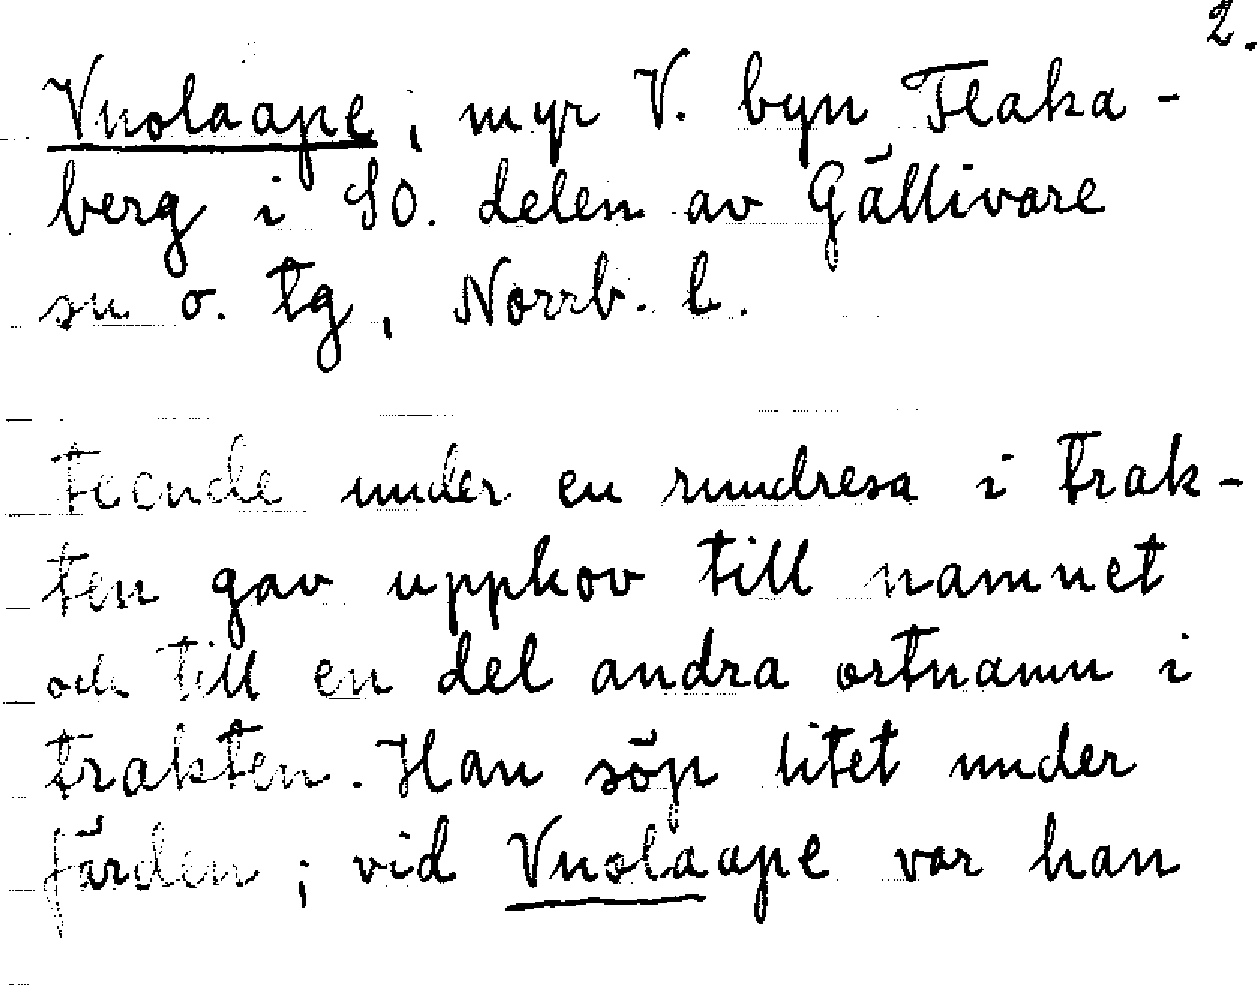 2.
Vuolaape, myr V. byn Flaka-
berg i SO. delen av Gällivare
sn o. tg, Norrb. l.
teende under en rundresa i trak-
ten gav upphov till namnet
och till en del andra ortnamn i
trakten. Han söp litet under
färden; vid Vuolaape var han